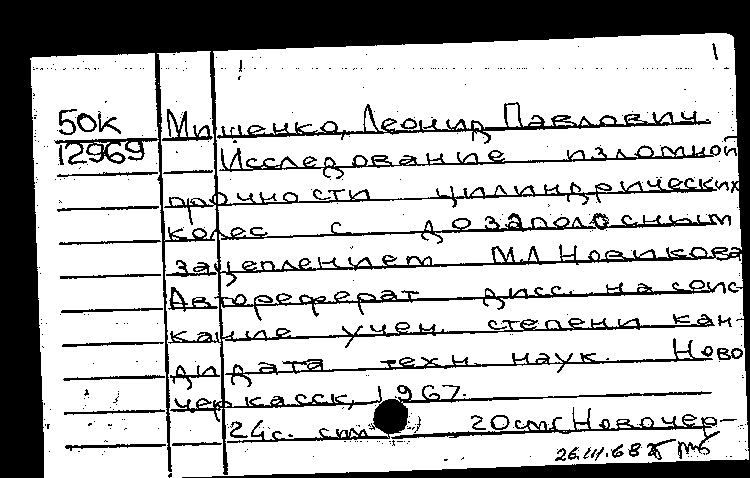 1
50к Мищенко, Леонид Павлович.
12969 Исследование изломной
прочности цилиндрических
колес с дозаполюсным
зацеплением М.Л Новикова
Автореферат дисс. на соис-
кание учен. степени кан-
дидата техн. наук. Ново
черкасск, 1967.
24с. 20см (Новочер-
26.III.68